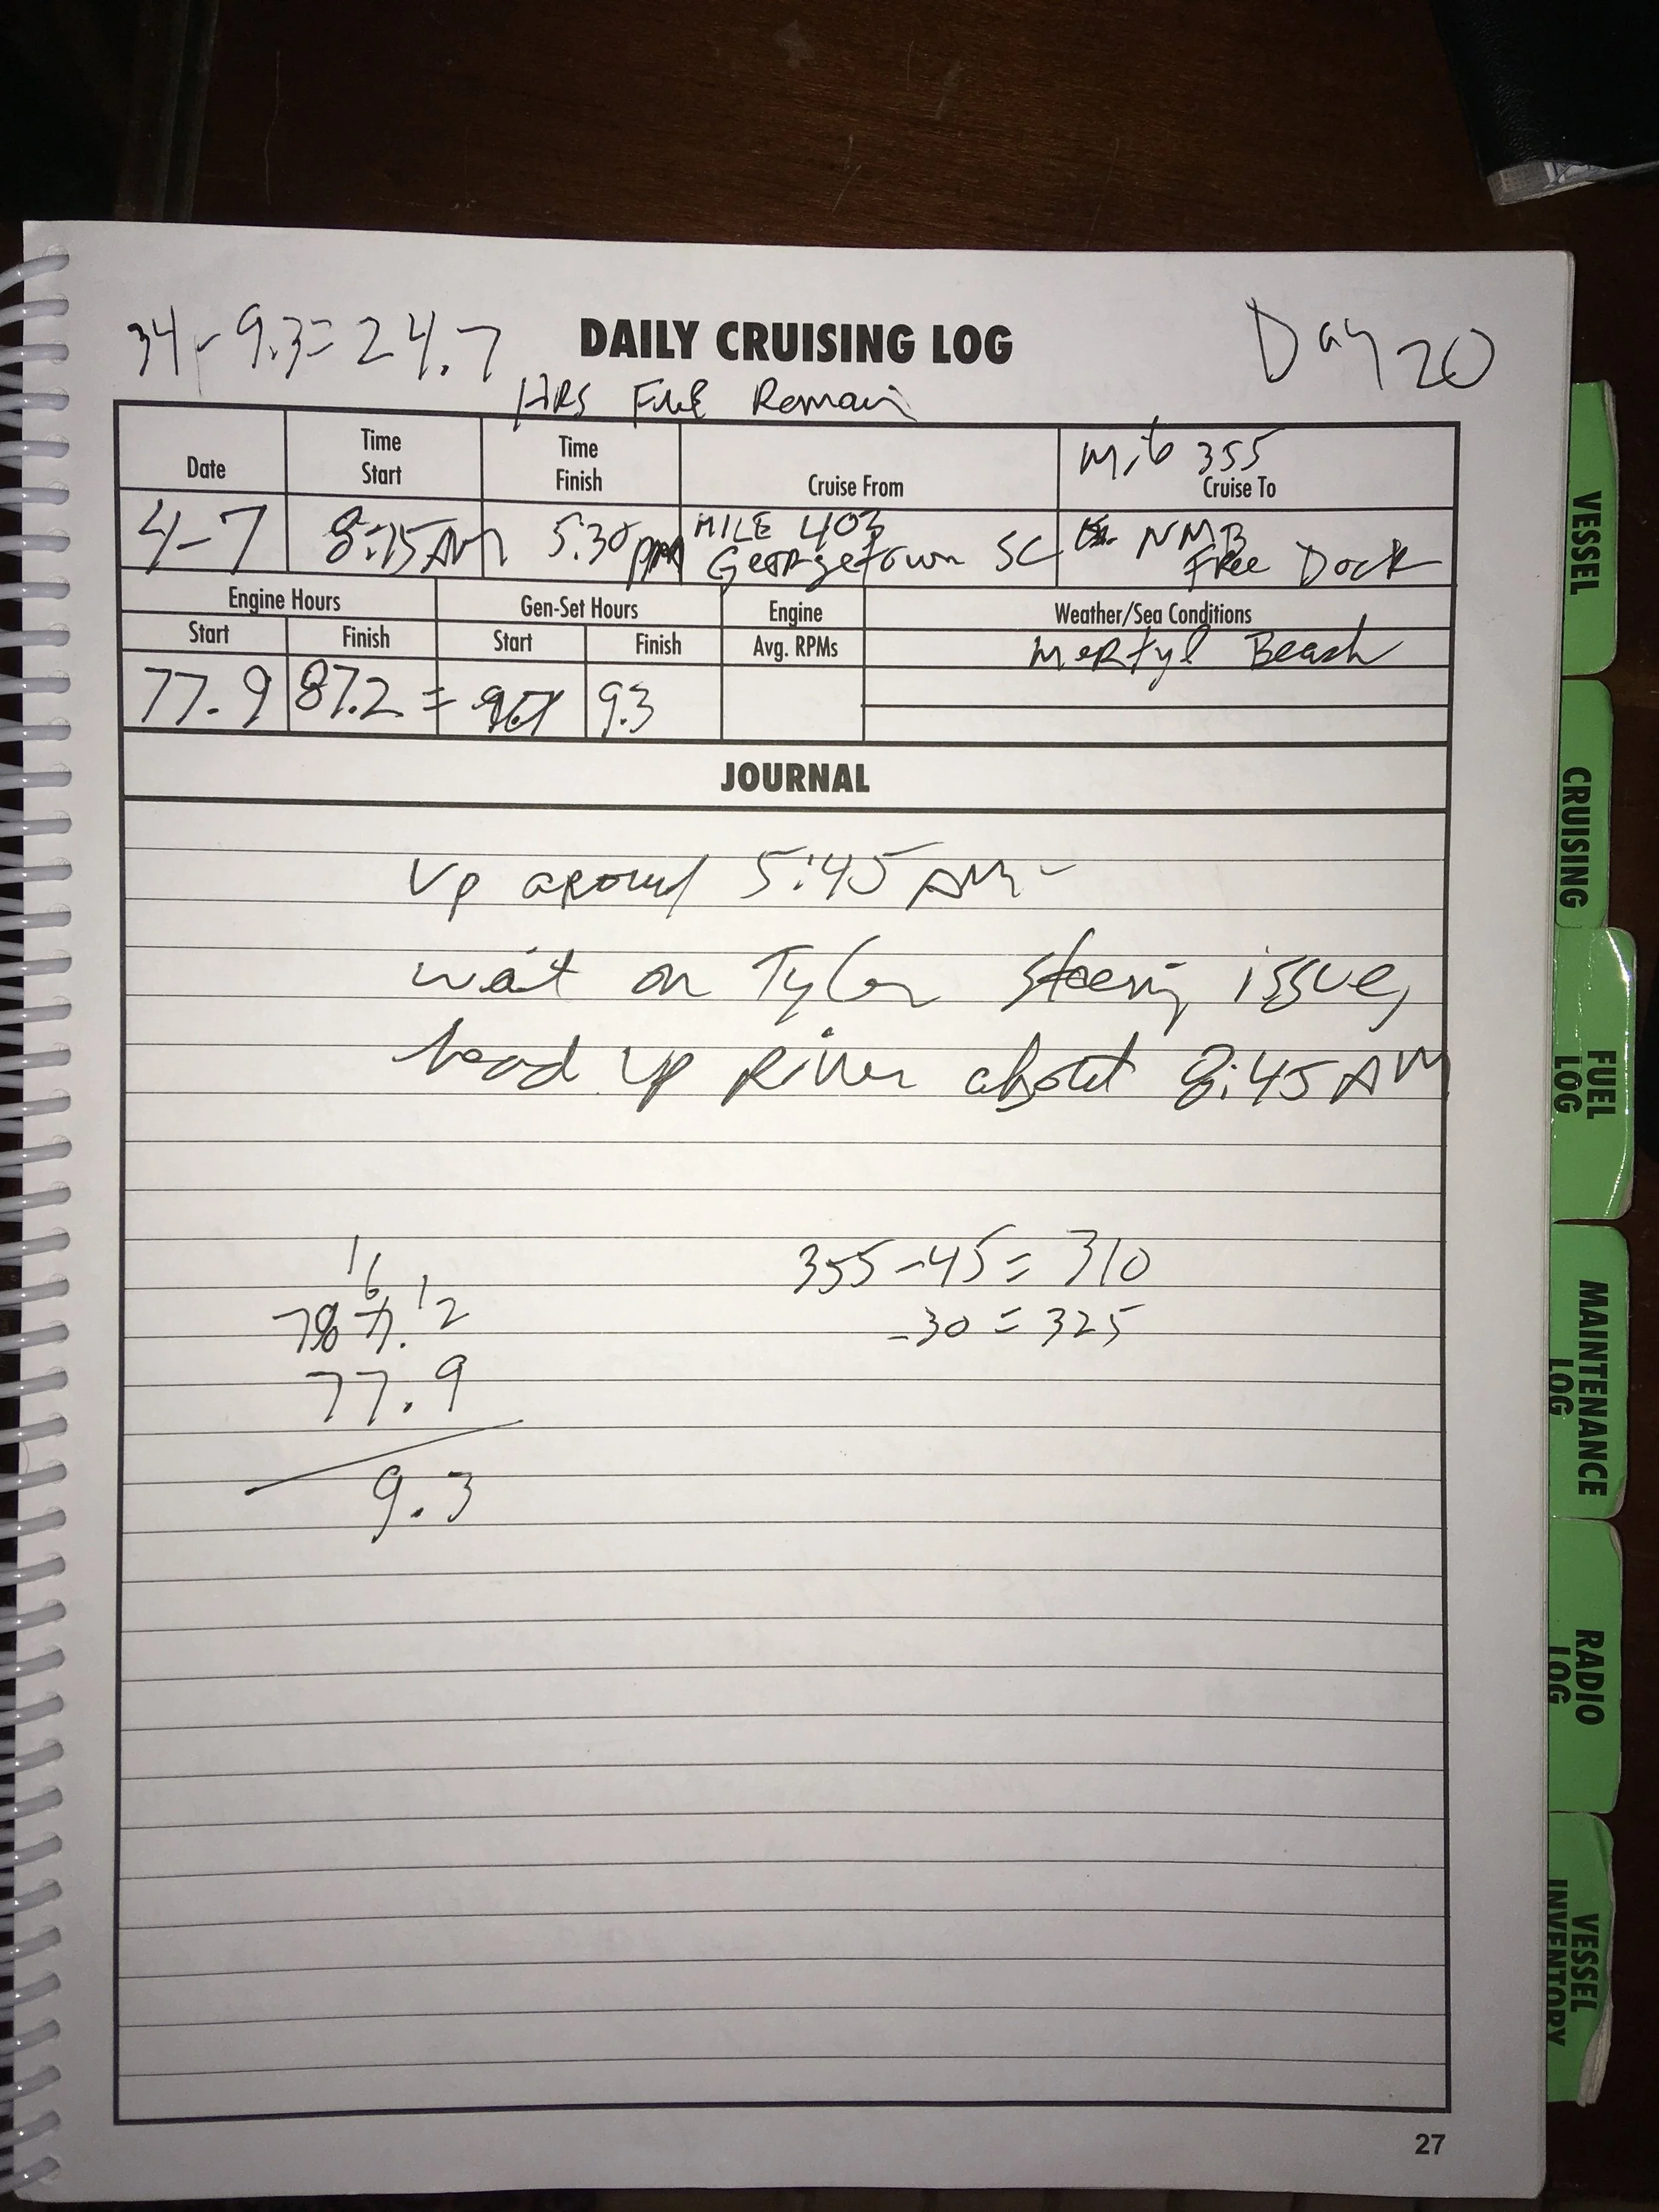 34 - 9.3 = 24.7
DAILY CRUISING LOG
Day 20
HRS Fuel Remain
Date
Time Start
Time Finish
Cruise From
Mile 355
Cruise To
4-7
8:15 AM
5:30 pm
MILE 403
Georgetown SC
NMB
Free Dock
Engine Hours
Gen-Set Hours
Engine
Weather/Sea Conditions
Start
Finish
Start
Finish
Avg. RPMs
Mertyl Beach
77.9
87.2 =
9.3
JOURNAL
Up around 5:45 AM -
wait on Tyler steering issue,
head up River about 8:45 AM
355 - 45 = 310
- 30 = 325
77.9
9.3
27
VESSEL
CRUISING
FUEL LOG
MAINTENANCE LOG
RADIO LOG
VESSEL INVENTORY